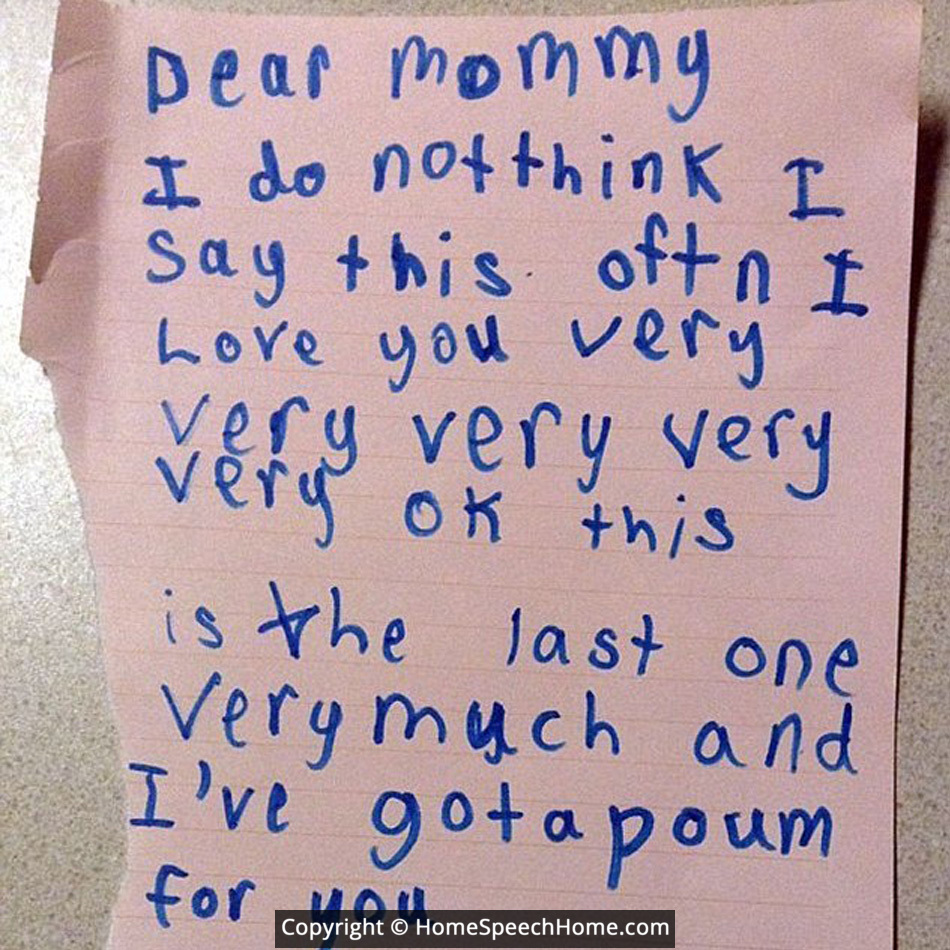 Dear mommy
I do not think I
say this oftn I
Love you very
very very very
very ok this
is the last one
very much and
I've got a poum
for you
Copyright © HomeSpeechHome.com